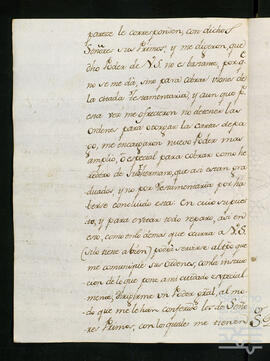 parece le corresponden, con dichos
Señores sus Primos, y me dixeron, que
dho Poder de V.S. no es bastante, porq.
no se me dá, sino para cobrar vienes de
la citada Testamentaria; y aunque p.r
esta vez me ofrecieron no detener las
ordenes para otorgar las cartas de pa-
go, me encargaron nuevo Poder mas
amplio, o especial para cobrar como he-
redero de su Hermano, que asi estan gra-
duados, y no por Testamentaria por ha-
berse concluido esta: En cuio supues-
to, y para evitar todo reparo, asi en
eso, como en lo demas que ocurra à V.S.
(si lo tiene a bien) podrá servirse al tpo que
me comunique sus ordenes, con la instruc-
cion de lo que pone a mi cuidado especial-
mente, dirigirme un Poder gral, al mo-
do que me le han conferido los de Seño-
res Primos, con los quales me tienen